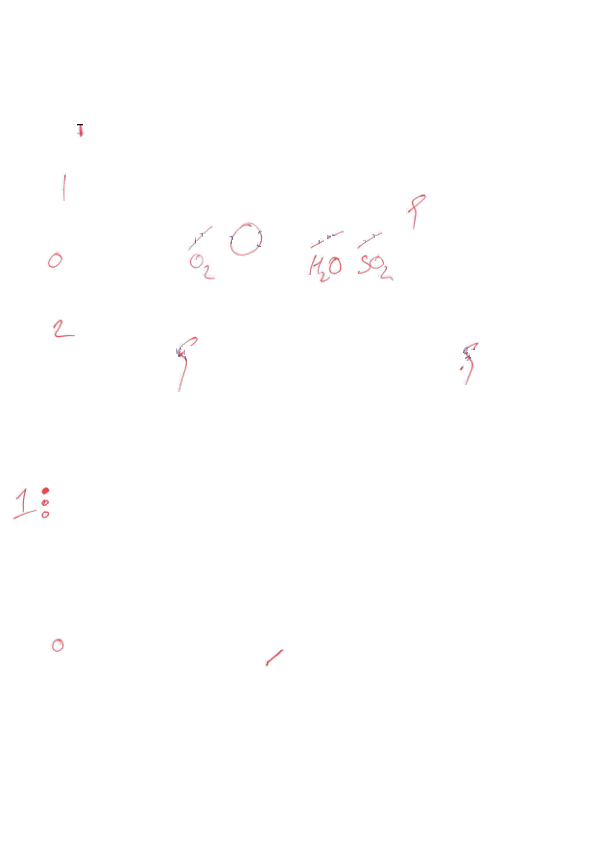 1
0
O2 H2O SO2
2
1:
0